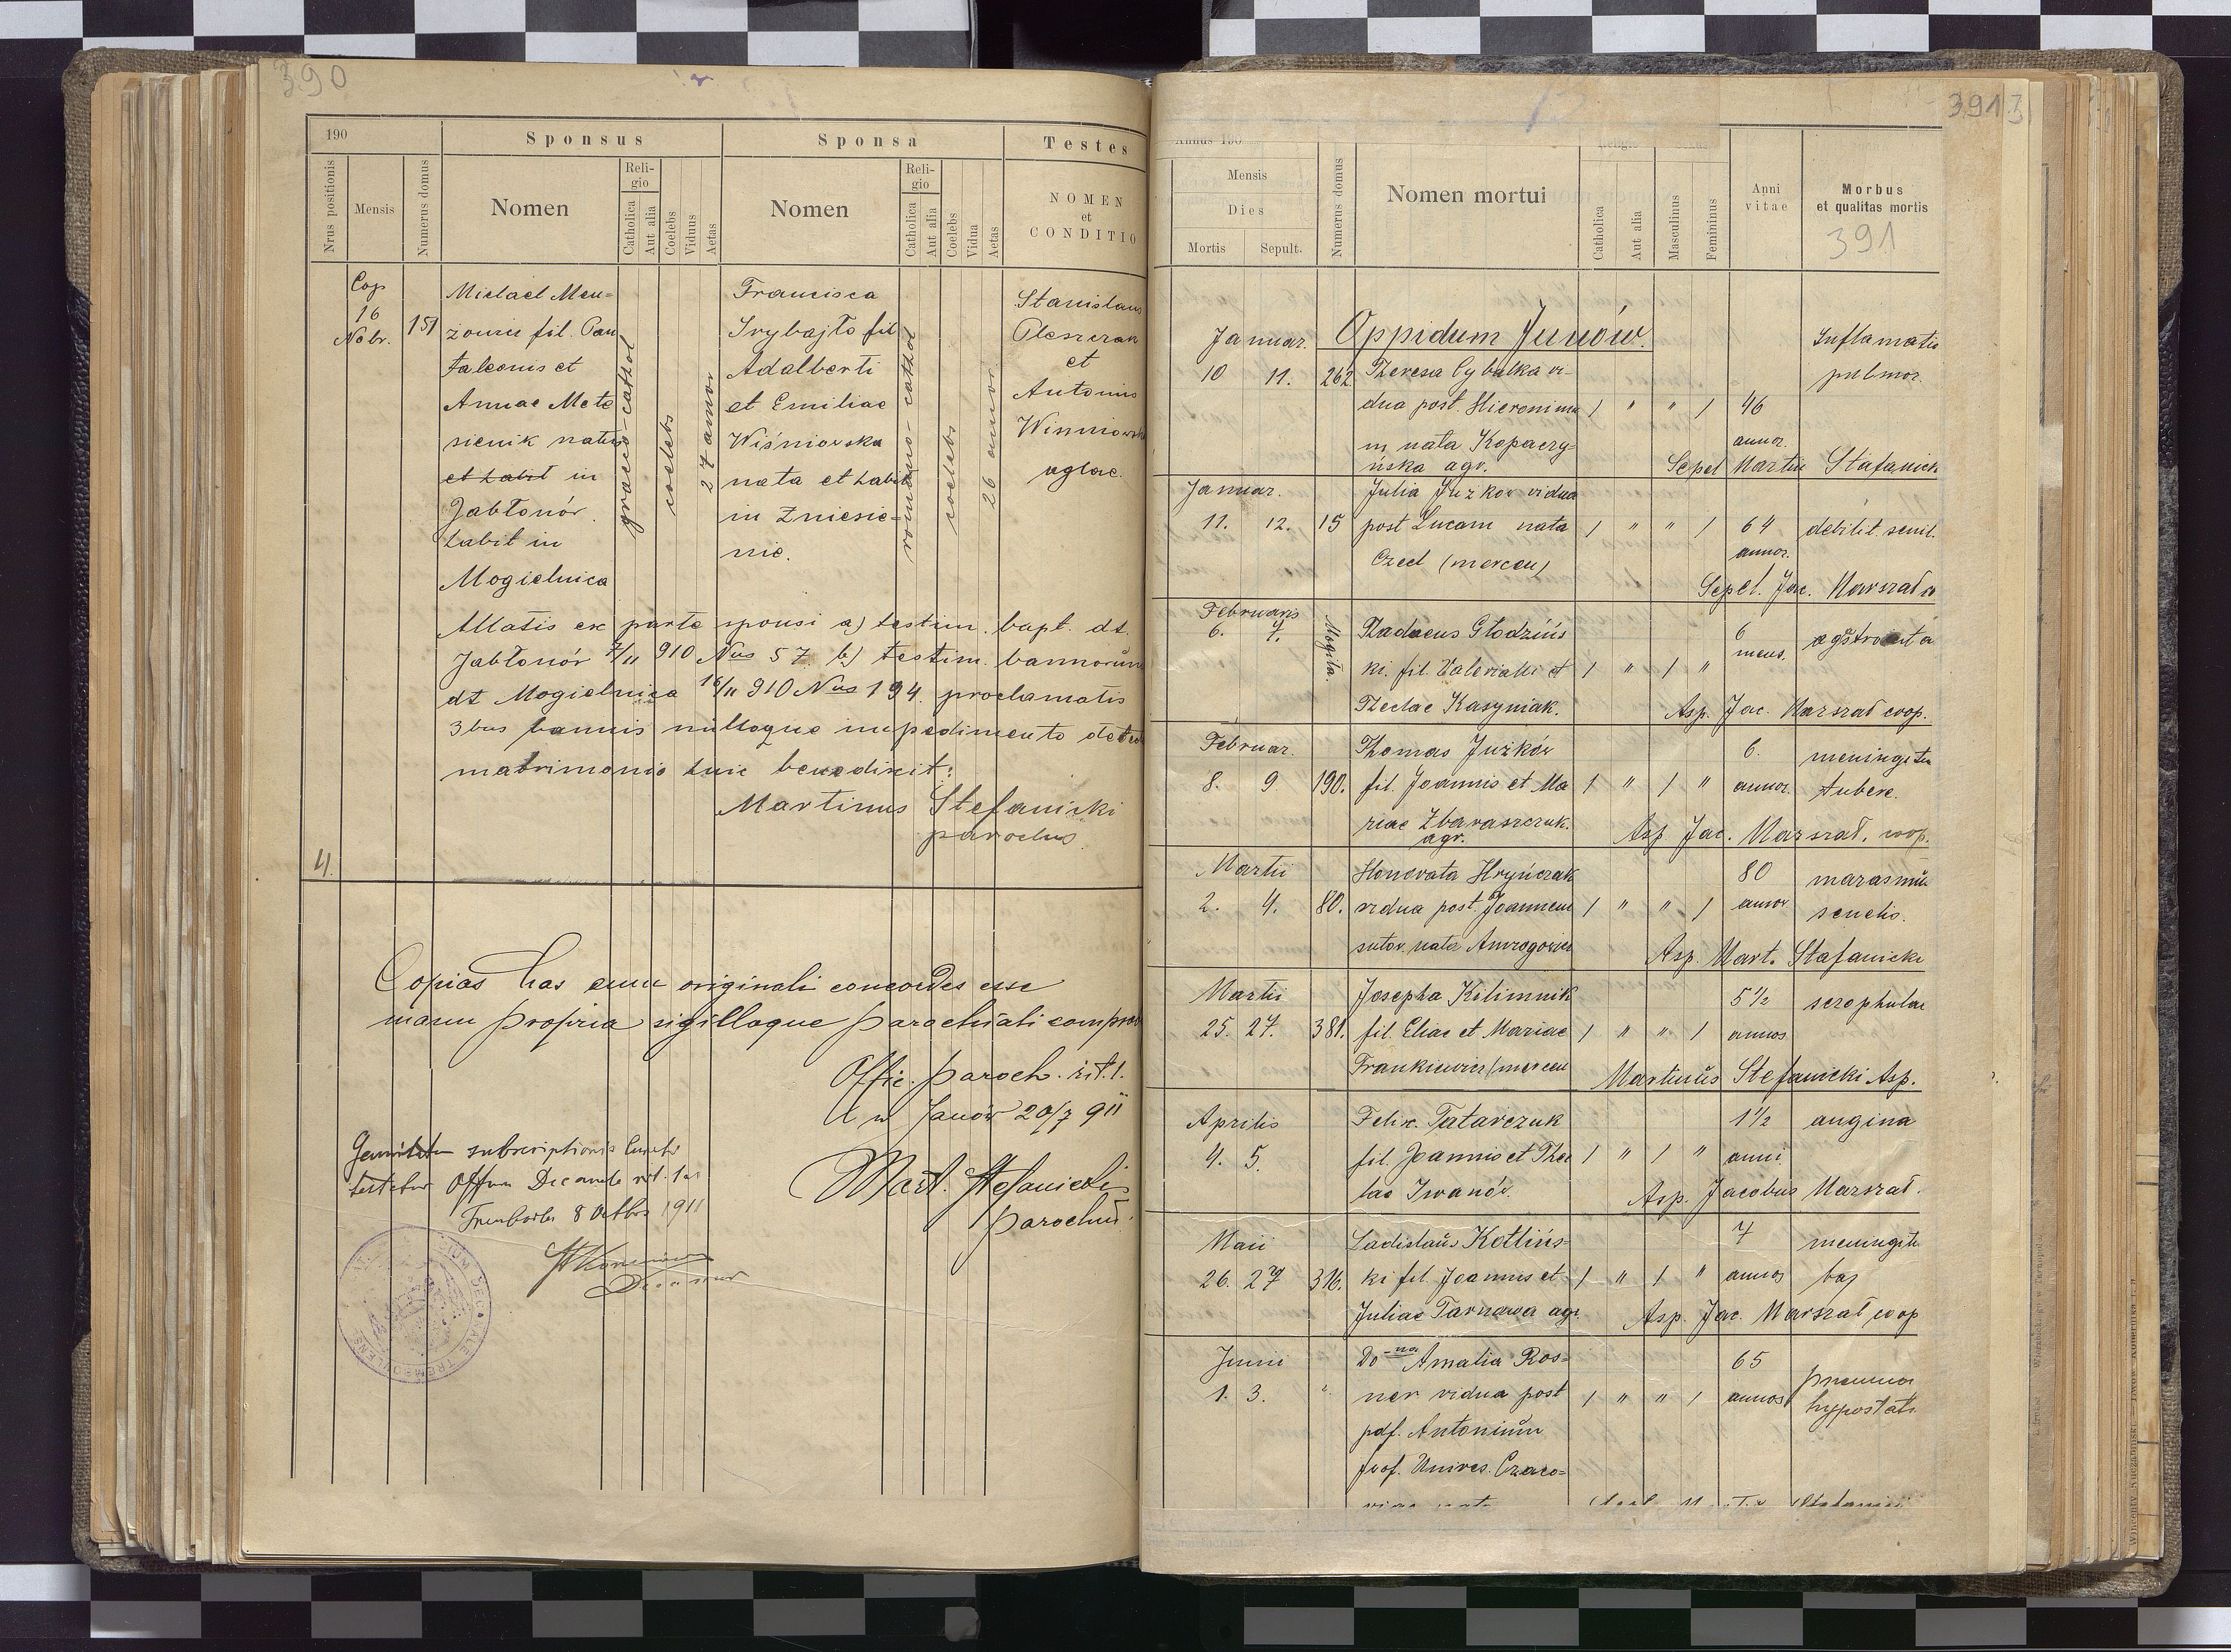 390
190
Sponsus
Sponsa
Testes
Nrus positionis
Mensis
Numerus domus
Nomen
Religio
Catholica
Aut alia
Coelebs
Viduus
Aetas
Nomen
Religio
Catholica
Aut alia
Coelebs
Vidua
Aetas
NOMEN
et
CONDITIO
Cop
16
Nobr.
151
Michael Men=
fil. Pan
taleonis et
Annae Mate
sienik natus
et habit in
Jabłonów
habit in
Mogielnica
graeco-cathol
coelebs
27 annor
Francisca
fil
Adalberti
et Emiliae
Wiśniowska
nata et habit
in Zniesie=
nie.
romano-cathol
coelebs
26 annor
Stanislaus
Pleszczak
et
Antonius
aglae.
Allatis ex parte sponsi a) testim. bapt. dt.
Jabłonów 7/11 910 Nus 57. b) testim. bannorum
dt Mogielnica 16/11 910 Nus 194. proclamatis
3bus bannis nulloque impedimento
matrimonio huic benedixit:
Martinus Stefanicki
parochus.
4.
Copias has cum originali concordes esse
manu propria sigilloque parochiali
Offic. paroch. rit. l.
Janów 20/7 911
Mart. Stefanicki
parochus.
subscriptionis
Decanale rit. lat
8 1911
Decanus
3913
Annus 190
Mensis
Dies
Mortis
Sepult.
Numerus domus
Nomen mortui
Catholica
Aut alia
Masculinus
Femininus
Anni
vitae
Morbus
et qualitas mortis
391
Oppidum Janów.
Januar.
10 11. 262 Theresa Cybulka vi-
dua post. Hieronimu 1 " " 1 46 annor.
m nata Kopaczy=
ńska agr.
Inflamatio
pulmor.
Sepel Martin Stefanicki
Januar.
11. 12. 15 Julia Juzkow vidua
post Lucam nata 1 " " 1 64 annor. debilit. senil.
Czech (mercen)
Sepel. Jac. Marszał
Februaris
6. 7. Mogiła. Thadaeus Głodzińs
ki fil. Valeriani et 1 " 1 " 6 mens.
Theclae Kasyniak.
Asp. Jac. Marszał coop.
Februar.
8. 9. 190. Thomas Juzków
fil. Joannis et Ma 1 " 1 " 6. annor. meningitis
riae Zbaraszczuk. tuberc.
agr.
Asp. Jac. Marszał. coop.
Martii
2. 4. 80. Honorata Hryńczak
vidua post. Joannem 1 " " 1 80 annor marasmus
sutor. nata senelis.
Asp. Mart. Stefanicki
Martii
25. 27. 381. Josepha Kilimnik
fil. Eliae et Mariae 1 " " 1 5 1/2 annos scrophulae
Frankiewicz (mercen
Martinus Stefanicki Asp.
Aprilis
4. 5. Felix. Tatarczuk
fil. Joannis et The 1 " 1 " 1 1/2 anni angina
lae Iwanów.
Asp. Jacobus Marszał.
Maii
26. 27 316. Ladislaus Kotlińs=
ki fil. Joannis et 1 " 1 " 7 annos
Juliae Tarnawa agr.
Asp. Jac. Marszał coop
Junii
1. 3. " Do-na Amalia Ros=
ner vidua post 1 " " 1 65 annos
pdf. Antonium hypostat.
prof. Univers. Craco=